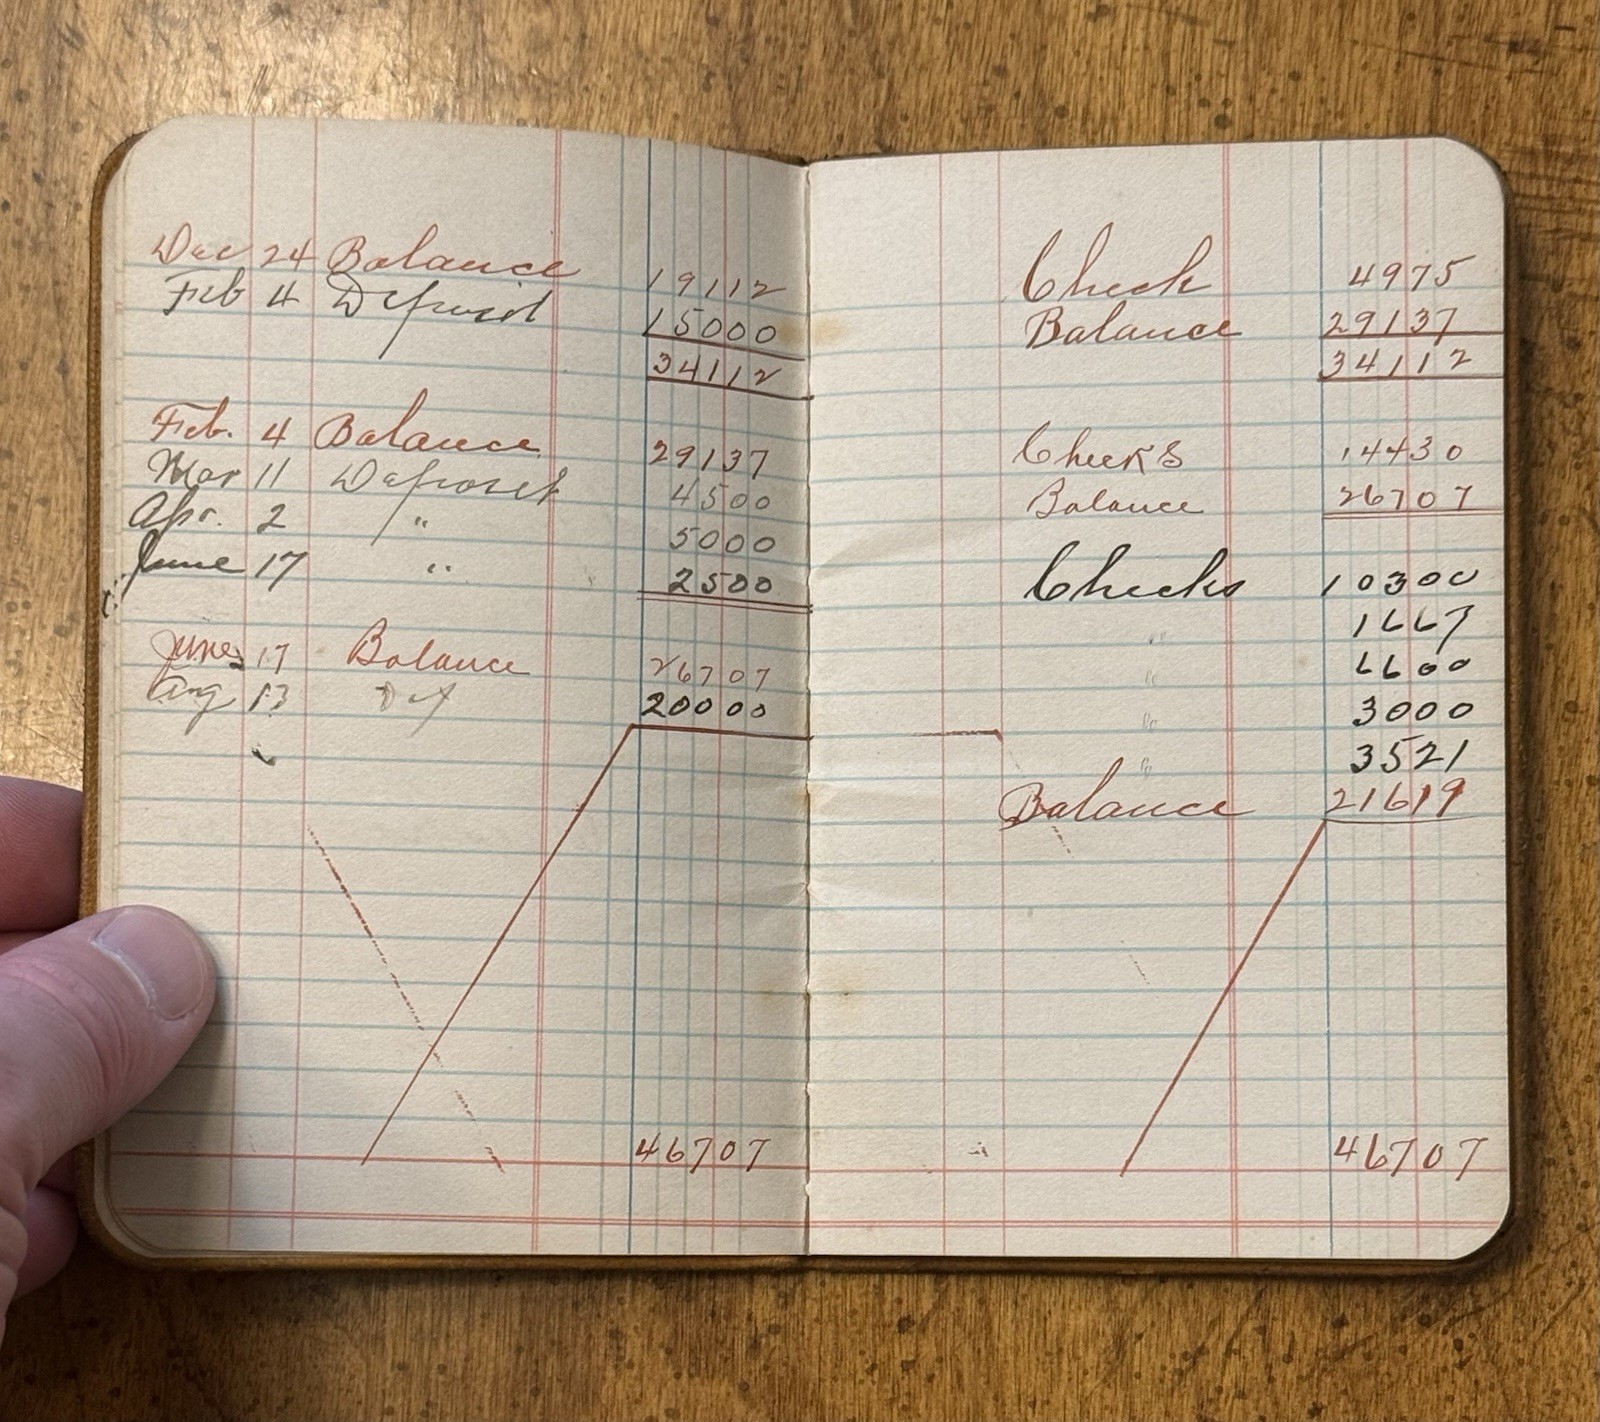 Dec 24 Balance 19112
Feb 4 Deposit 15000
34112
Feb. 4 Balance 29137
Mar 11 Deposit 4500
Apr. 2 " 5000
June 17 " 2500
June 17 Balance 26707
Aug 13 20000
46707
Check 4975
Balance 29137
34112
Checks 14430
Balance 26707
Checks 10300
" 1667
" 6600
" 3000
" 3521
Balance 21619
46707